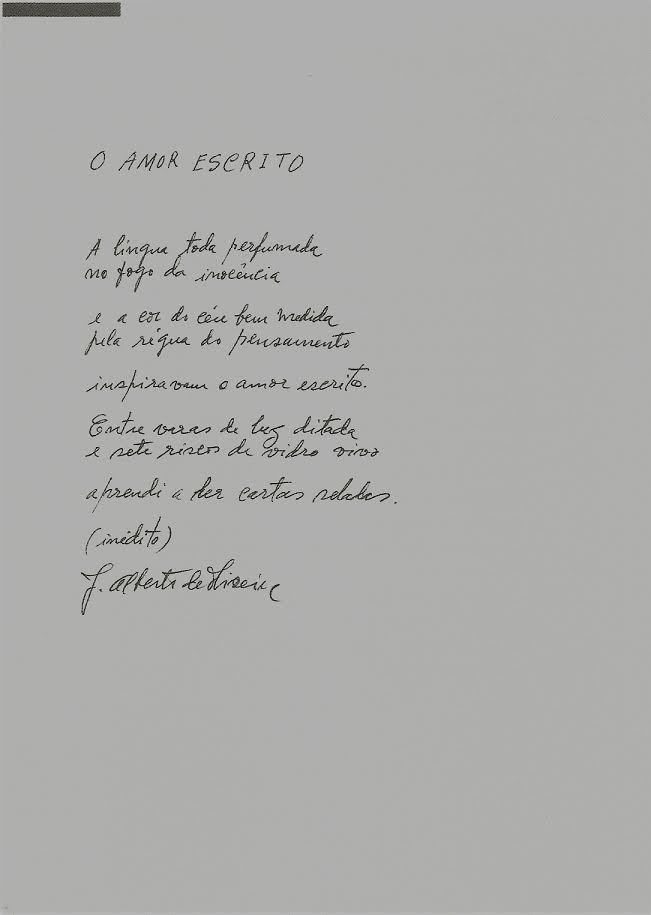 O AMOR ESCRITO
A língua toda perfumada
no fogo da inocência
e a cor do céu bem medida
pela régua do pensamento
inspiravam o amor escrito.
Entre varas de luz ditada
e sete riscos de vidro vivo
aprendi a ler cartas seladas.
(inédito)
J. Alberto de Oliveira